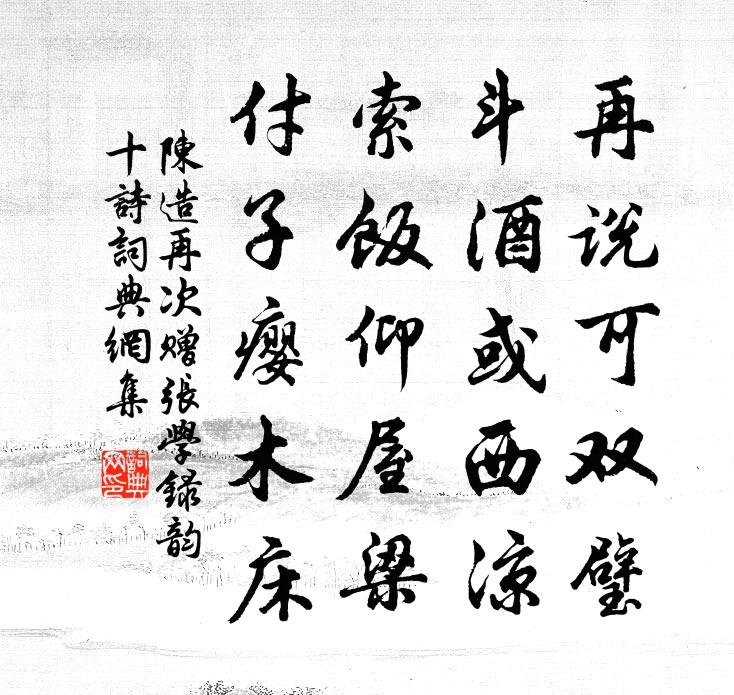 再说可双璧
斗酒或西凉
索饭仰屋梁
付子瘿木床
陳造再次贈張學録韵
十詩詞典網集
詞典网印